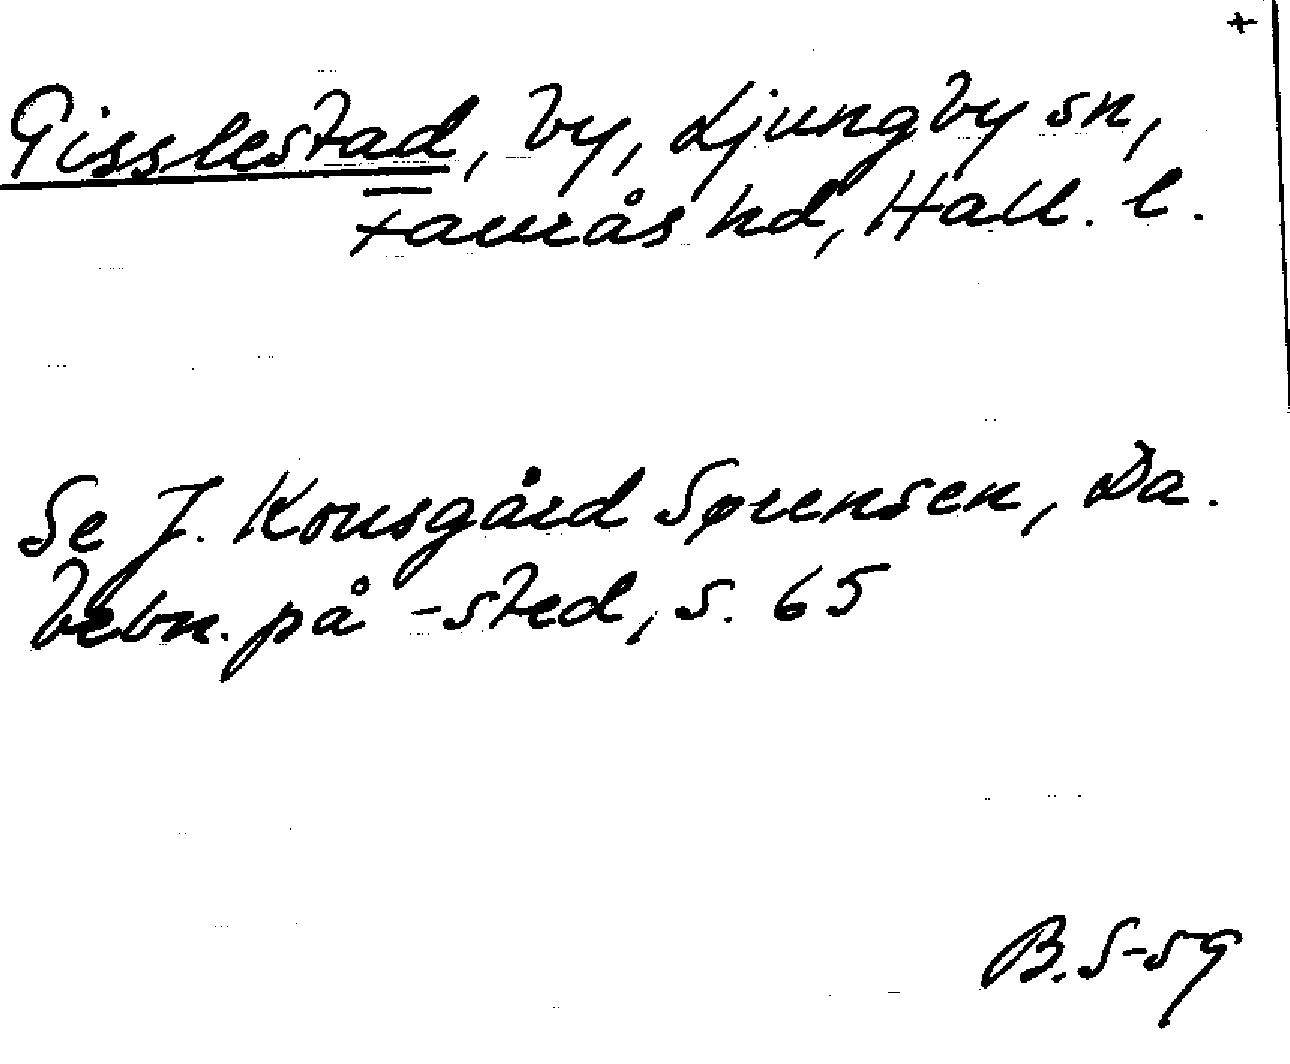 +
Gisslestad, by, Ljungby sn,
Faurås hd, Hall. l.
Se J. Kousgård Sørensen, Da.
bebn. på -sted, s. 65
B. S-59